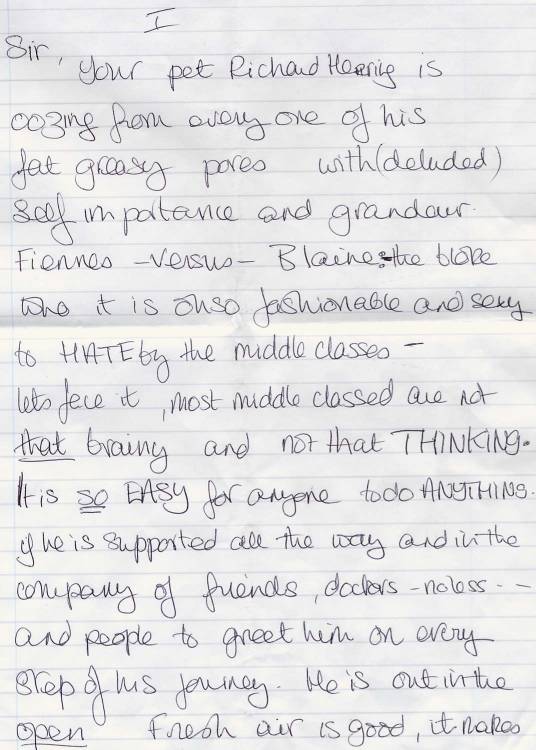 I
Sir,
Your pet Richard Herring is
oozing from every one of his
fat greasy pores with (deluded)
self importance and grandeur.
Fiennes - versus - Blaine: the bloke
who it is ohso fashionable and sexy
to HATE by the middle classes -
lets face it, most middle classed are not
that brainy and not that THINKING.
It is so EASY for anyone to do ANYTHING.
if he is supported all the way and in the
company of friends, doctors - noless - -
and people to greet him on every
step of his journey. He is out in the
open Fresh air is good, it makes